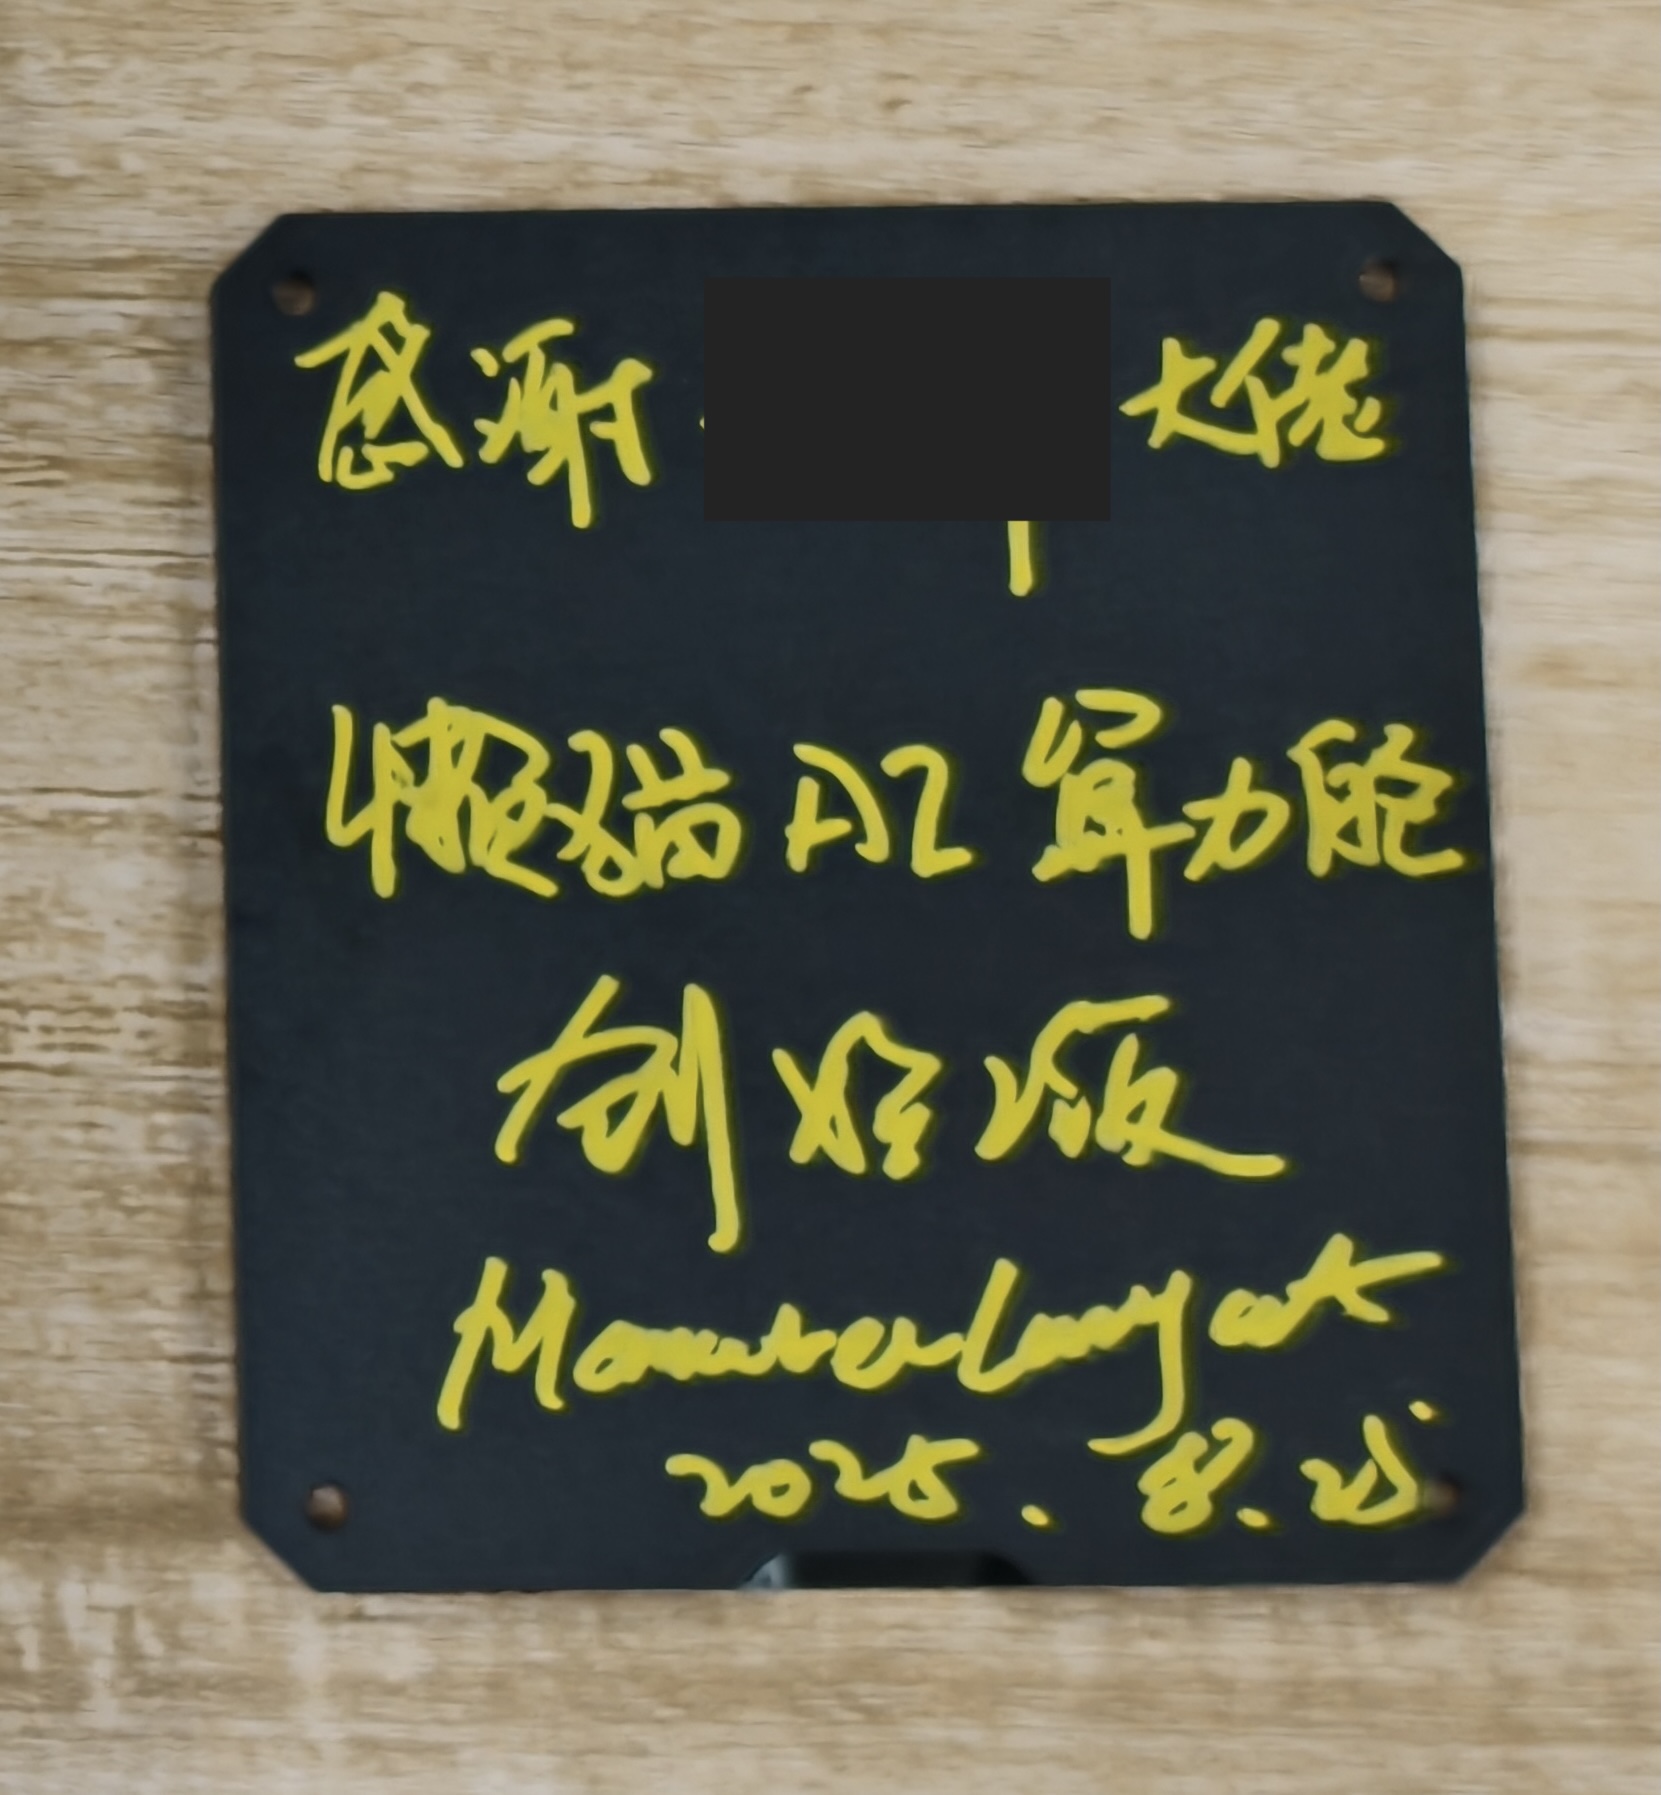 感谢 大佬
懒猫 AI 算力舱
创始版
ManateeLazycat
2025. 8. 25